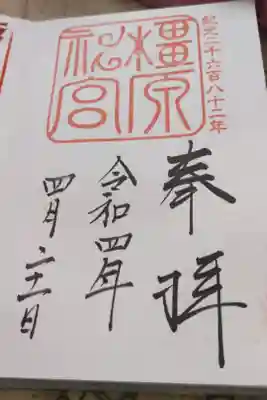 紀元二千六百八十二年
橿原
神宮
奉拝
令和四年
四月二十一日